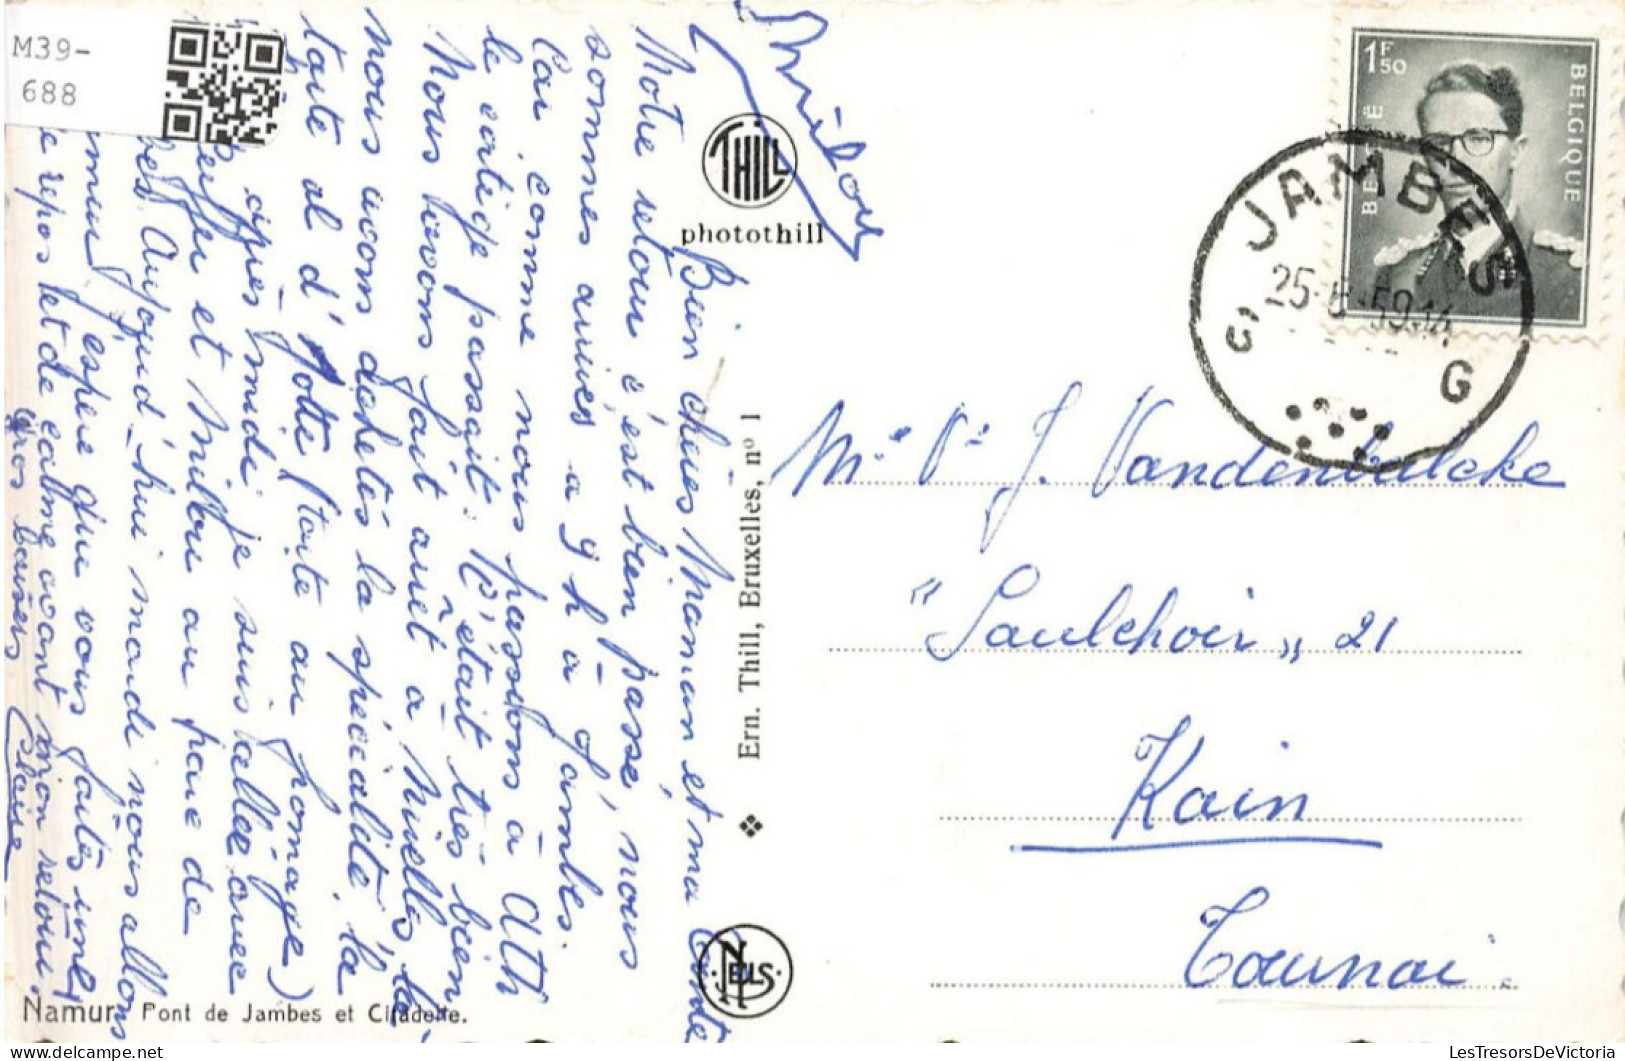 M39-
688
Bien chères Maman et ma Tante
Notre retour c'est bien passé, nous
sommes arrivés à 9 h à Jambes.
Car comme nous passions à Ath
le cortège passait. C'était très bien
Nous avons fait arrêt à Nivelles, là
nous avons achetés la spécialité. la
tarte al d'jotte (tarte au fromage)
après midi je suis allée avec
et Milou au parc de
Aujourd'hui mardi nous allons
J'espère que vous faites une
repos et de calme avant mon retour.
Gros baisers Claire
Milou
THILL
photothill
Ern. Thill, Bruxelles, nº 1
NELS
Namur. Pont de Jambes et Citadelle.
1F50
BELGIË
BELGIQUE
JAMBES
25-59.14
G G
Mr Vr J. Vandenbulcke
"Saulchoir" 21
Kain
Tournai.
LesTresorsDeVictoria